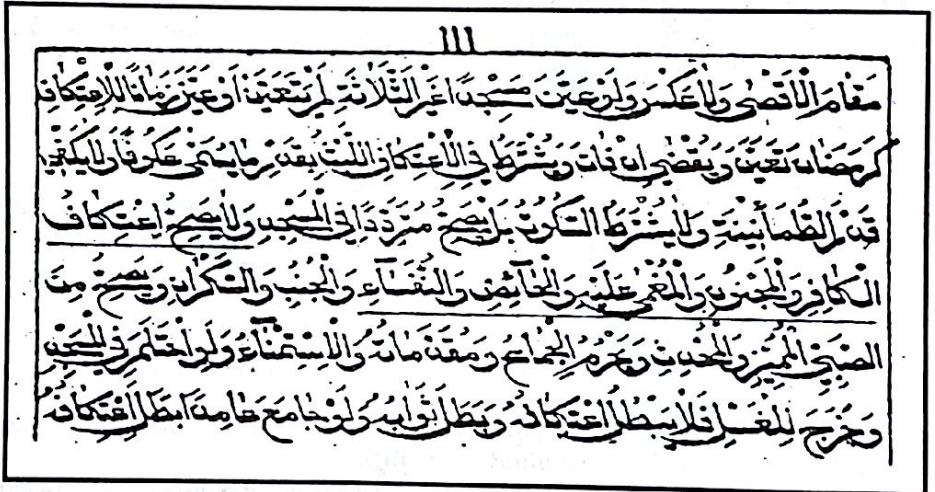 ١١١
مَقَامَ الْاَقْصٰى وَلَا عَكْسَ وَلَوْ عَيَّنَ مَسْجِدًا غَيْرَ الثَّلَاثَةِ لَمْ يَتَعَيَّنْ اَوْ عَيَّنَ زَمَانًا لِلْاِعْتِكَافِ
كَرَمَضَانَ تَعَيَّنَ وَيُقْضٰى اِنْ فَاتَ وَيُشْتَرَطُ فِي الْاِعْتِكَافِ اللُّبْثُ بِقَدْرِ مَا يُسَمّٰى عَكُوفًا وَلَا يَكْفِي
قَدْرُ الطُّمَأْنِيْنَةِ وَلَا يُشْتَرَطُ السُّكُوْتُ بَلْ يَصِحُّ مُتَرَدِّدًا فِي الْمَسْجِدِ وَلَا يَصِحُّ اِعْتِكَافُ
الْكَافِرِ وَالْمَجْنُوْنِ وَالْمُغْمٰى عَلَيْهِ وَالْحَآئِضِ وَالنُّفَسَآءِ وَالْجُنُبِ وَالسَّكْرَانِ وَيَصِحُّ مِنَ
الصَّبِيِّ الْمُمَيِّزِ وَالْمُحْدِثِ وَيَحْرُمُ الْجِمَاعُ وَمُقَدِّمَاتُهُ وَالْاِسْتِمْنَآءُ وَلَوِ احْتَلَمَ فِي الْمَسْجِدِ
وَخَرَجَ لِلْغُسْلِ فَلَا يَبْطُلُ اعْتِكَافُهُ وَيَبْطُلُ ثَوَابُهُ وَلَوْ جَامَعَ عَامِدًا بَطَلَ اعْتِكَافُهُ